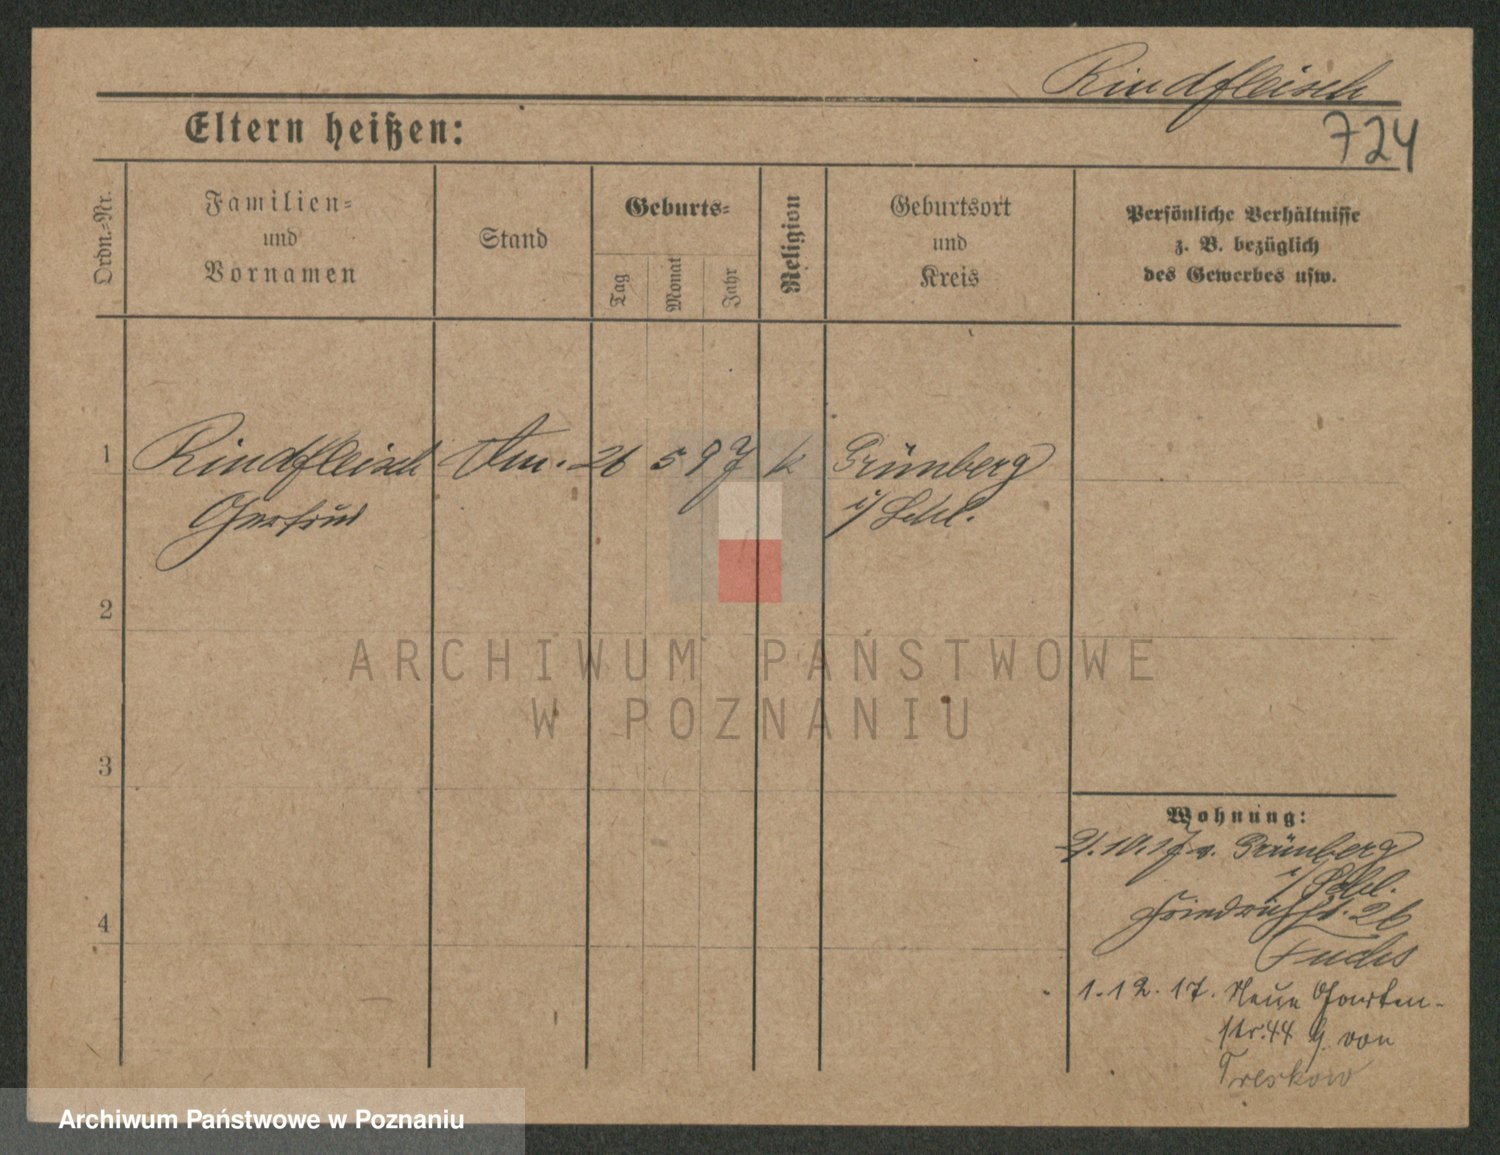 Rindfleisch
Eltern heißen:
724
Ordn.-Nr.
Familien-
und
Vornamen
Stand
Geburts-
Tag
Monat
Jahr
Religion
Geburtsort
und
Kreis
Persönliche Verhältnisse
z. B. bezüglich
des Gewerbes usw.
1 Rindfleisch 26 5 97 k Grünberg
Gertrud i/Schl.
2
ARCHIWUM PAŃSTWOWE
W POZNANIU
3
Wohnung:
2.10.17 v. Grünberg
i/Schl.
Friedrichst. 26
4
Fuchs
1.12.17. Neue Garten-
str. 44 von
Treskow
Archiwum Państwowe w Poznaniu